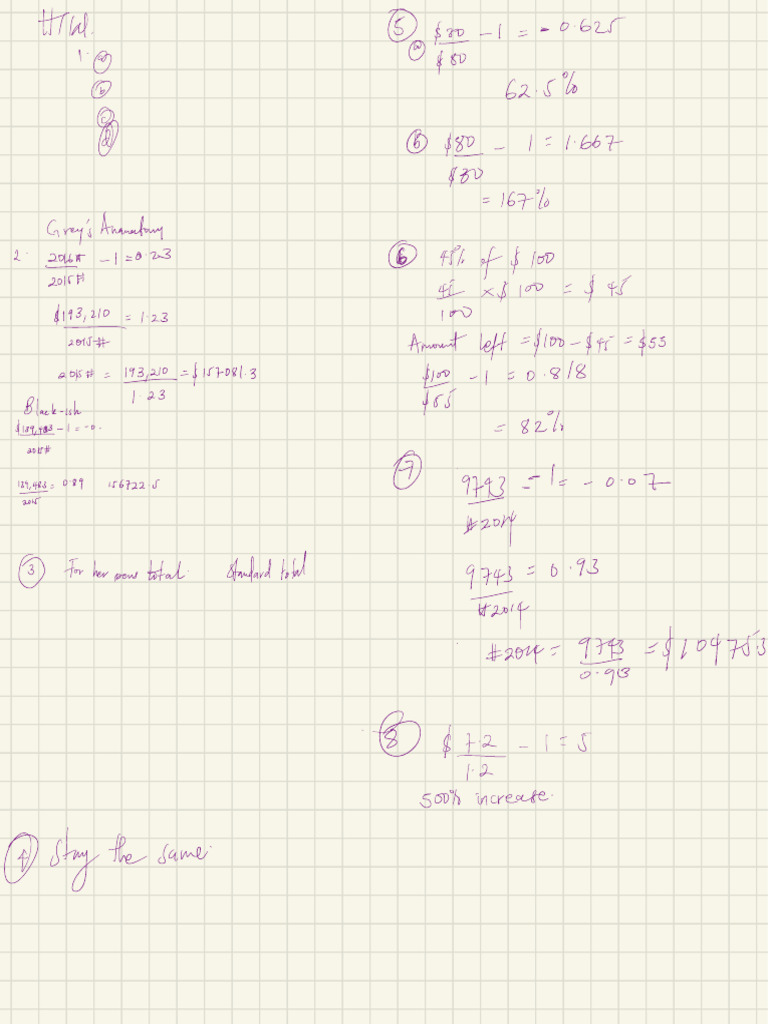 HTW.
1. (a)
(b)
(c)
(d)
Grey's Anamatomy
2. 2016# / 2015# - 1 = 0.23
$193,210 / 2015# = 1.23
2015# = 193,210 / 1.23 = $157081.3
Black-ish
$139,483 / 2015# - 1 = -0.
139,483 / 2015 = 0.89 156722.5
(3) For her own total. Standard total
(4) Stay the same.
(5)
(a) $30 / $80 - 1 = -0.625
62.5%
(b) $80 / $30 - 1 = 1.667
= 167%
(6) 45% of $100
45 / 100 × $100 = $45
Amount left = $100 - $45 = $55
$100 / $55 - 1 = 0.818
= 82%
(7) 9743 / #2014 - 1 = -0.07
9743 / #2014 = 0.93
#2014 = 9743 / 0.93 = $10475.3
(8) $ 7.2 / 1.2 - 1 = 5
500% increase.